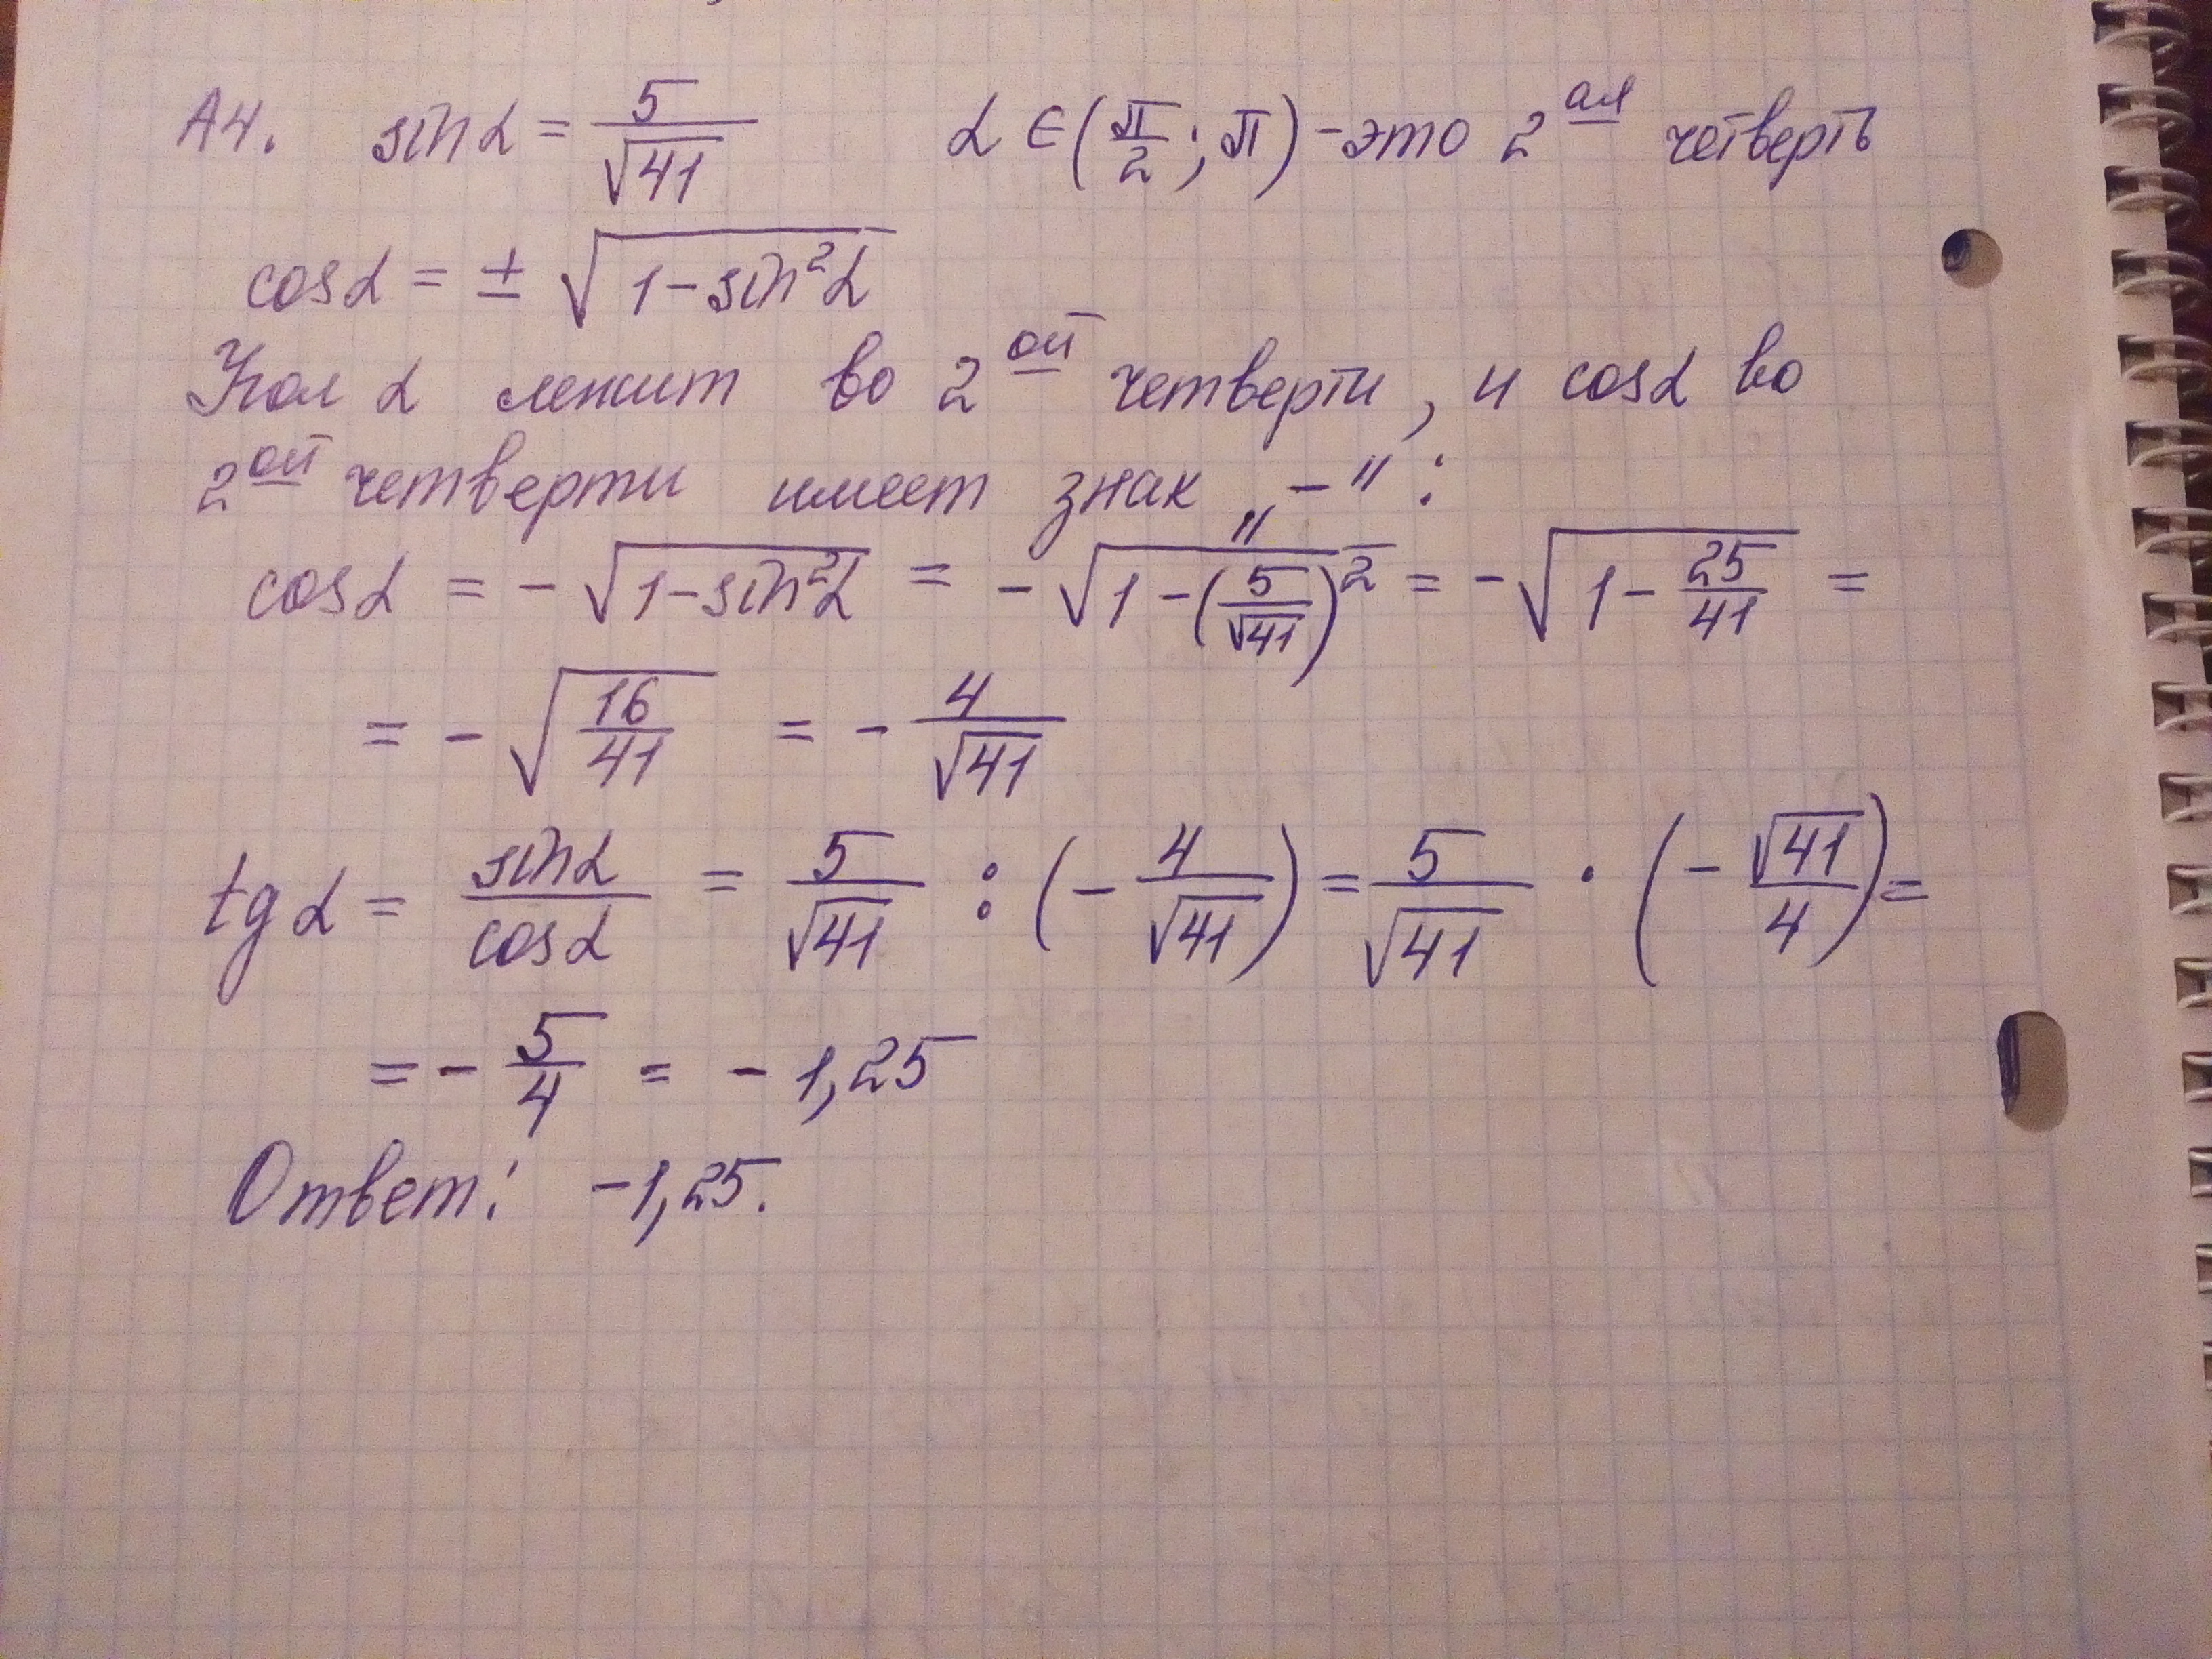 А4. sin α = 5/√41 α ∈ (π/2; π) - это 2 ая четверть
cos α = ± √(1 - sin² α)
Угол α лежит во 2 ой четверти, и cos α во
2 ой четверти имеет знак „-“ :
cos α = - √(1 - sin² α) = - √(1 - (5/√41)²) = - √(1 - 25/41) =
= - √(16/41) = - 4/√41
tg α = sin α/cos α = 5/√41 : (- 4/√41) = 5/√41 · (- √41/4) =
= - 5/4 = - 1,25
Ответ: -1,25.